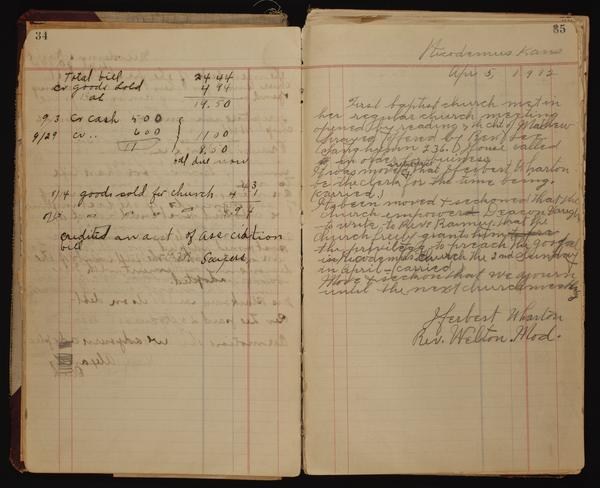 34
Total bill 24.44
Cr goods sold 4 94
Bal 19.50
9 3 Cr Cash 500
9/29 Cr .. 600 11 00
11 8.50
Bal due now
11/4 goods sold for church 4
4.94
credited on act of Association
bill
85
Nicodemus Kans
Apr 5, 1912
First baptist church met in
her regular church meeting
opened by reading 4th cht of Mathew
Prayer offered by Rev
sang hymn 236. D House called
for business
It was moved that Jferbert Wharton
be the clerk for the time being.
Carried.
It been moved & seckoned that the
church empowered Deacon Vaugh
to write to Rev. Raney. That the
church freely grants him
the privilege to preach the gospel
in Nicodemus Church the 2nd Sunday
in April - (carried
Move & seckon that we yourn
until the next church meeting
Jferbert Wharton
Rev. Welton. Mod.